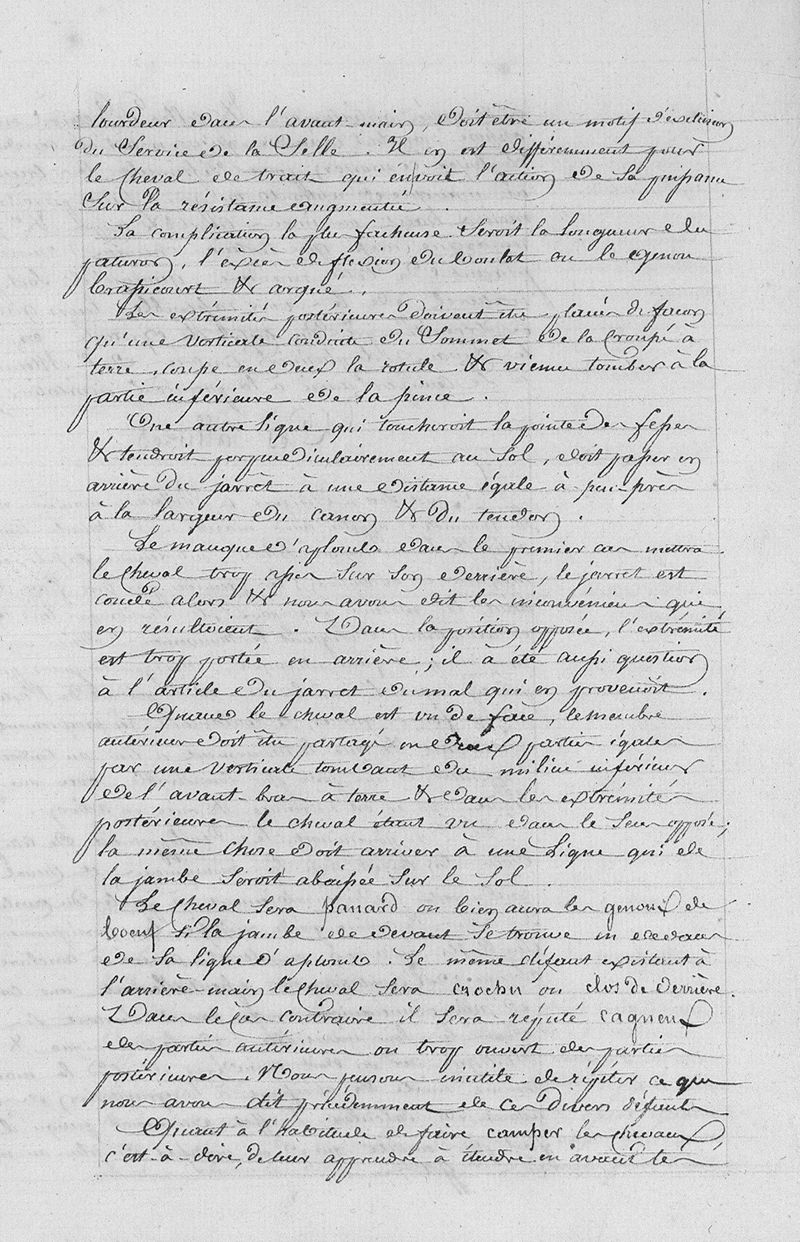 lourdeur dans l'avant-main, doit être un motif d'exclusion
du Service de la Selle. Il en est différemment pour
le Cheval de trait qui envoit l'action de sa puissance
Sur la résistance augmentée.
La complication la plus facheuse seroit la longueur du
paturon, l'excès de flexion du boulet ou le genou
brassicourt & arqué.
Les extrémités postérieures doivent être placées de facon
qu'une verticale conduite du Sommet de la Croupe à
terre, coupe en deux la rotule & vienne tomber à la
partie inférieure de la pince.
Une autre ligne qui toucheroit la pointe des fesses
& tendroit perpendiculairement au sol, doit passer en
arrière du jarret à une distance égale à peu-près
à la largeur du canon & du tendon.
Le manque d'aplombs dans le premier cas mettra
le Cheval trop sur son derrière, le jarret est
coudé alors & nous avons dit les inconvéniens qui
en résultoient. Dans la position opposée, l'extrémité
est trop portée en arrière; il à été aussi question
à l'article du jarret du mal qui en provenoit.
Quand le cheval est vu de face, le membre
antérieur doit être partagé en deux parties égales
par une verticale tombant du milieu inférieur
de l'avant-bras à terre & dans les extrémités
postérieures le cheval étant vu dans le sens opposé;
la même chose doit arriver à une ligne qui de
la jambe seroit abaissée sur le sol.
Le Cheval sera panard ou bien aura les genoux de
boeuf si la jambe de devant se trouve en dedans
de sa ligne d'aplomb. Le même défaut existant à
l'arrière-main le cheval sera crochu ou clos de derrière.
Dans le cas contraire il sera réputé cagneux
des parties antérieures ou trop ouvert des parties
postérieures. Nous pensons inutile de répéter ce que
nous avons dit précédemment de ces divers défauts
Quant à l'habitude de faire camper les chevaux,
c'est-à-dire, de leur apprendre à étendre en avant les